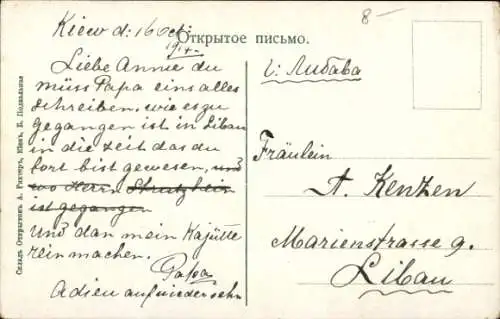 8-
Kiew d: 16 Oct.
1914.
Открытое письмо.
Liebe Annie du
müss Papa eins alles
schreiben, wie es zu
gegangen ist in Liban
in die Zeit das du
fort bist gewesen, und
wo Herr
ist gegangen
Und dan mein Kajütte
rein machen.
Papa
Adieu aufwiedersehn
г: Либава
Fräulein
A. Kenzen
Marienstrasse 9.
Libau
Складъ Открытокъ А. Рихтеръ, Кіевъ, Б. Подвальная